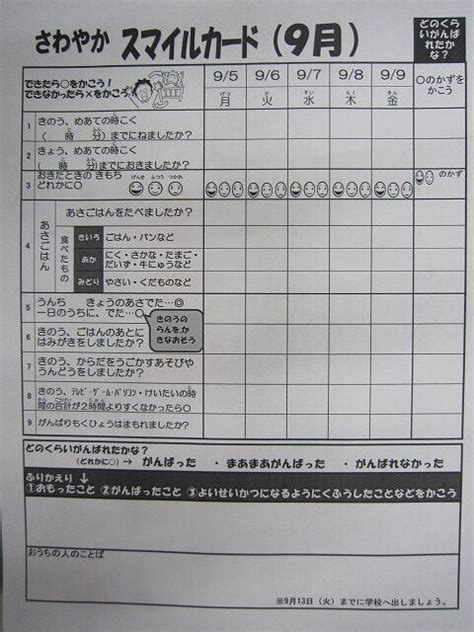 さわやか スマイルカード（9月）
どのくらいがんばれたかな？
できたら○をかこう！
できなかったら×をかこう
9/5 9/6 9/7 9/8 9/9
月 火 水 木 金
○のかずをかこう
1 きのう、めあての時こく
（　時　分）までにねましたか？
2 きょう、めあての時こく
（　時　分）までにおきましたか？
3 おきたときの きもち
どれかに○
げんき ふつう つかれ
のかず
4 あさごはん
あさごはんをたべましたか？
食べたもの
きいろ ごはん・パンなど
あか にく・さかな・たまご・
だいず・牛にゅうなど
みどり やさい・くだものなど
5 うんち　きょうのあさでた…◎
一日のうちに、でた…○
きのうの
らんを、か
きなおそう
6 きのう、ごはんのあとに
はみがきをしましたか？
7 きのう、からだをうごかすあそびや
うんどうをしましたか？
8 きのう、テレビ・ゲーム・パソコン・けいたいの時
間の合計が2時間よりすくなかったら○
9 がんばりもくひょうはまもれましたか？
どのくらいがんばれたかな？
（どれかに○）→ がんばった ・ まあまあがんばった ・ がんばれなかった
ふりかえり→
①おもったこと ②がんばったこと ③よいせいかつになるようにくふうしたことなどをかこう
おうちの人のことば
※9月13日（火）までに学校へ出しましょう。